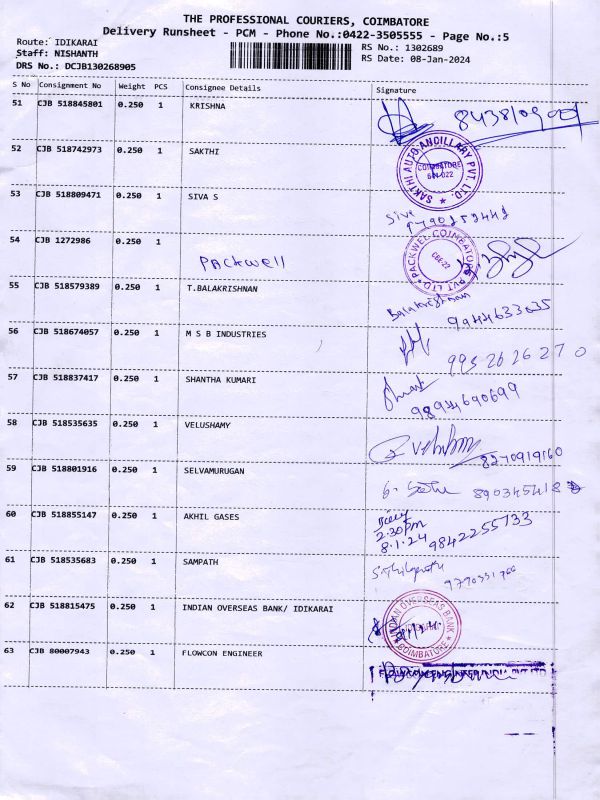 THE PROFESSIONAL COURIERS, COIMBATORE
Delivery Runsheet - PCM - Phone No.:0422-3505555 - Page No.:5
Route: IDIKARAI
Staff: NISHANTH
DRS No.: DCJB130268905
RS No.: 1302689
RS Date: 08-Jan-2024
S No Consignment No Weight PCS Consignee Details Signature
51 CJB 518845801 0.250 1 KRISHNA
52 CJB 518742973 0.250 1 SAKTHI
SAKTHI AUTO ANCILLARY PVT. LTD. COIMBATORE 641 022
53 CJB 518809471 0.250 1 SIVA S
Siva
54 CJB 1272986 0.250 1
Packwell
PACKWEL COIMBATORE PVT LTD
55 CJB 518579389 0.250 1 T.BALAKRISHNAN
Balakrishnan
9944633635
56 CJB 518674057 0.250 1 M S B INDUSTRIES
995 26 26 270
57 CJB 518837417 0.250 1 SHANTHA KUMARI
58 CJB 518535635 0.250 1 VELUSHAMY
8270919160
59 CJB 518801916 0.250 1 SELVAMURUGAN
60 CJB 518855147 0.250 1 AKHIL GASES
2.30pm
8.1.24 9842255733
61 CJB 518535683 0.250 1 SAMPATH
62 CJB 518815475 0.250 1 INDIAN OVERSEAS BANK/ IDIKARAI
INDIAN OVERSEAS BANK COIMBATORE
63 CJB 80007943 0.250 1 FLOWCON ENGINEER